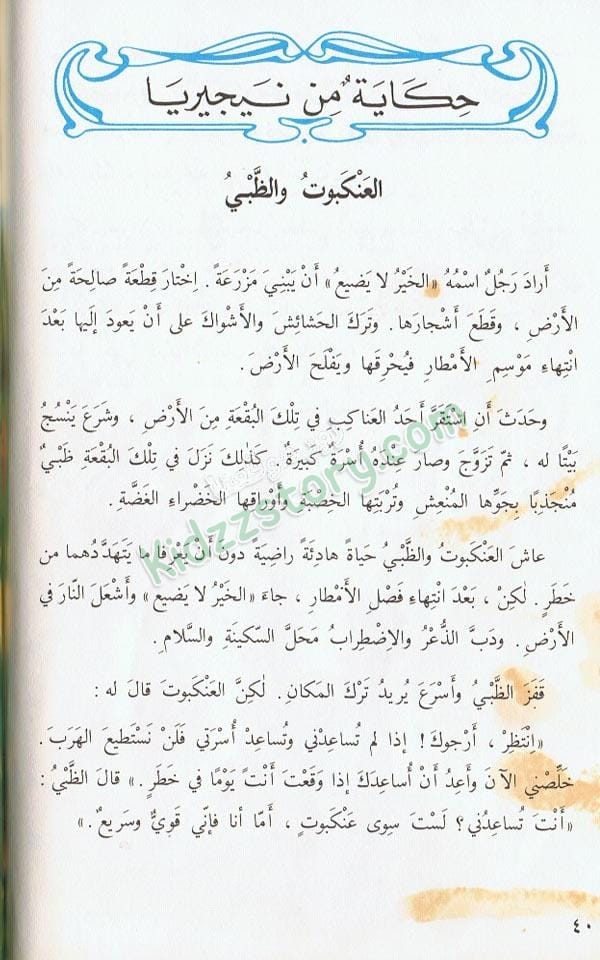 حِكَايَةٌ مِن نَيجيريَا
العَنْكَبوتُ والظَّبْيُ
أَرادَ رَجُلٌ اسْمُهُ «الخَيْرُ لا يَضيعُ» أَنْ يَبْنِيَ مَزْرَعَةً. اِخْتارَ قِطْعَةً صالِحَةً مِنَ
الأَرْضِ ، وقَطَعَ أَشْجارَها. وتَرَكَ الحَشائِشَ والأَشْواكَ على أَنْ يَعودَ إليها بَعْدَ
انْتِهاءِ مَوْسِمِ الأَمْطارِ فيُحْرِقَها ويَفْلَحَ الأَرْضَ.
وحَدَثَ أَنِ اسْتَقَرَّ أَحَدُ العَناكِبِ في تِلْكَ البُقْعَةِ مِنَ الأَرْضِ ، وشَرَعَ يَنْسُجُ
بَيْتًا له ، ثمّ تَزَوَّجَ وصارَ عِنْدَهُ أُسْرَةٌ كَبيرَةٌ. كَذٰلِكَ نَزَلَ في تِلْكَ البُقْعَةِ ظَبْيٌ
مُنْجَذِبًا بِجَوِّها المُنْعِشِ وتُرْبَتِها الخِصْبَةِ وأَوْراقِها الخَضْراءِ الغَضَّةِ.
عاشَ العَنْكَبوتُ والظَّبْيُ حَياةً هادِئَةً راضِيَةً دونَ أَنْ يَعْرِفا ما يَتَهَدَّدُهما من
خَطَرٍ. لٰكِنْ ، بَعْدَ انْتِهاءِ فَصْلِ الأَمْطارِ ، جاءَ «الخَيْرُ لا يَضيع» وأَشْعَلَ النّارَ في
الأَرْضِ. ودَبَّ الذُّعْرُ والِاضْطِرابُ مَحَلَّ السَّكينَةِ والسَّلامِ.
قَفَزَ الظَّبْيُ وأَسْرَعَ يُريدُ تَرْكَ المَكانِ. لٰكِنَّ العَنْكَبوتَ قالَ له :
«اِنْتَظِرْ ، أَرْجوكَ! إذا لم تُساعِدْني وتُساعِدْ أُسْرَتي فَلَنْ نَسْتَطيعَ الهَرَبَ.
خَلِّصْني الآنَ وأَعِدُ أَنْ أُساعِدَكَ إذا وَقَعْتَ أَنْتَ يَوْمًا في خَطَرٍ.» قالَ الظَّبْيُ :
«أَنْتَ تُساعِدُني؟ لَسْتَ سِوى عَنْكَبوتٍ ، أَمّا أنا فإنّي قَوِيٌّ وسَريعٌ.»
٤٠
kidzzstory.com